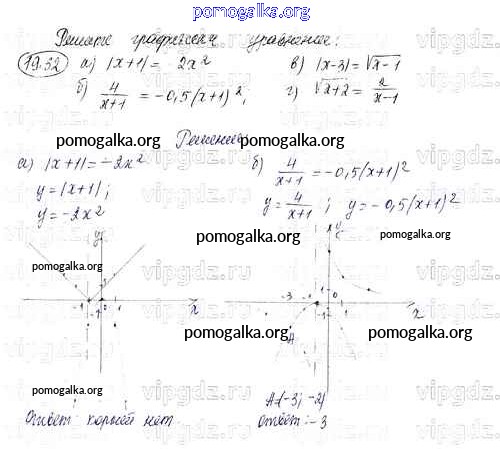 pomogalka.org
Решите графически уравнение:
19.52 а) |x+1| = 2x² в) |x-3| = √x-1
б) 4/x+1 = -0,5(x+1)², г) √x+2 = 2/x-1
pomogalka.org Решение pomogalka.org
а) |x+1| = -2x² б) 4/x+1 = -0,5(x+1)²
y = |x+1|; y = 4/x+1; y = -0,5(x+1)²
y = -2x²
pomogalka.org
y y
pomogalka.org pomogalka.org
-1 0 1 x -3 -1 0 1 x
pomogalka.org pomogalka.org
A
pomogalka.org pomogalka.org
A(-3; -2)
Ответ: корней нет. Ответ: -3
pomogalka.org
vipgdz.ru